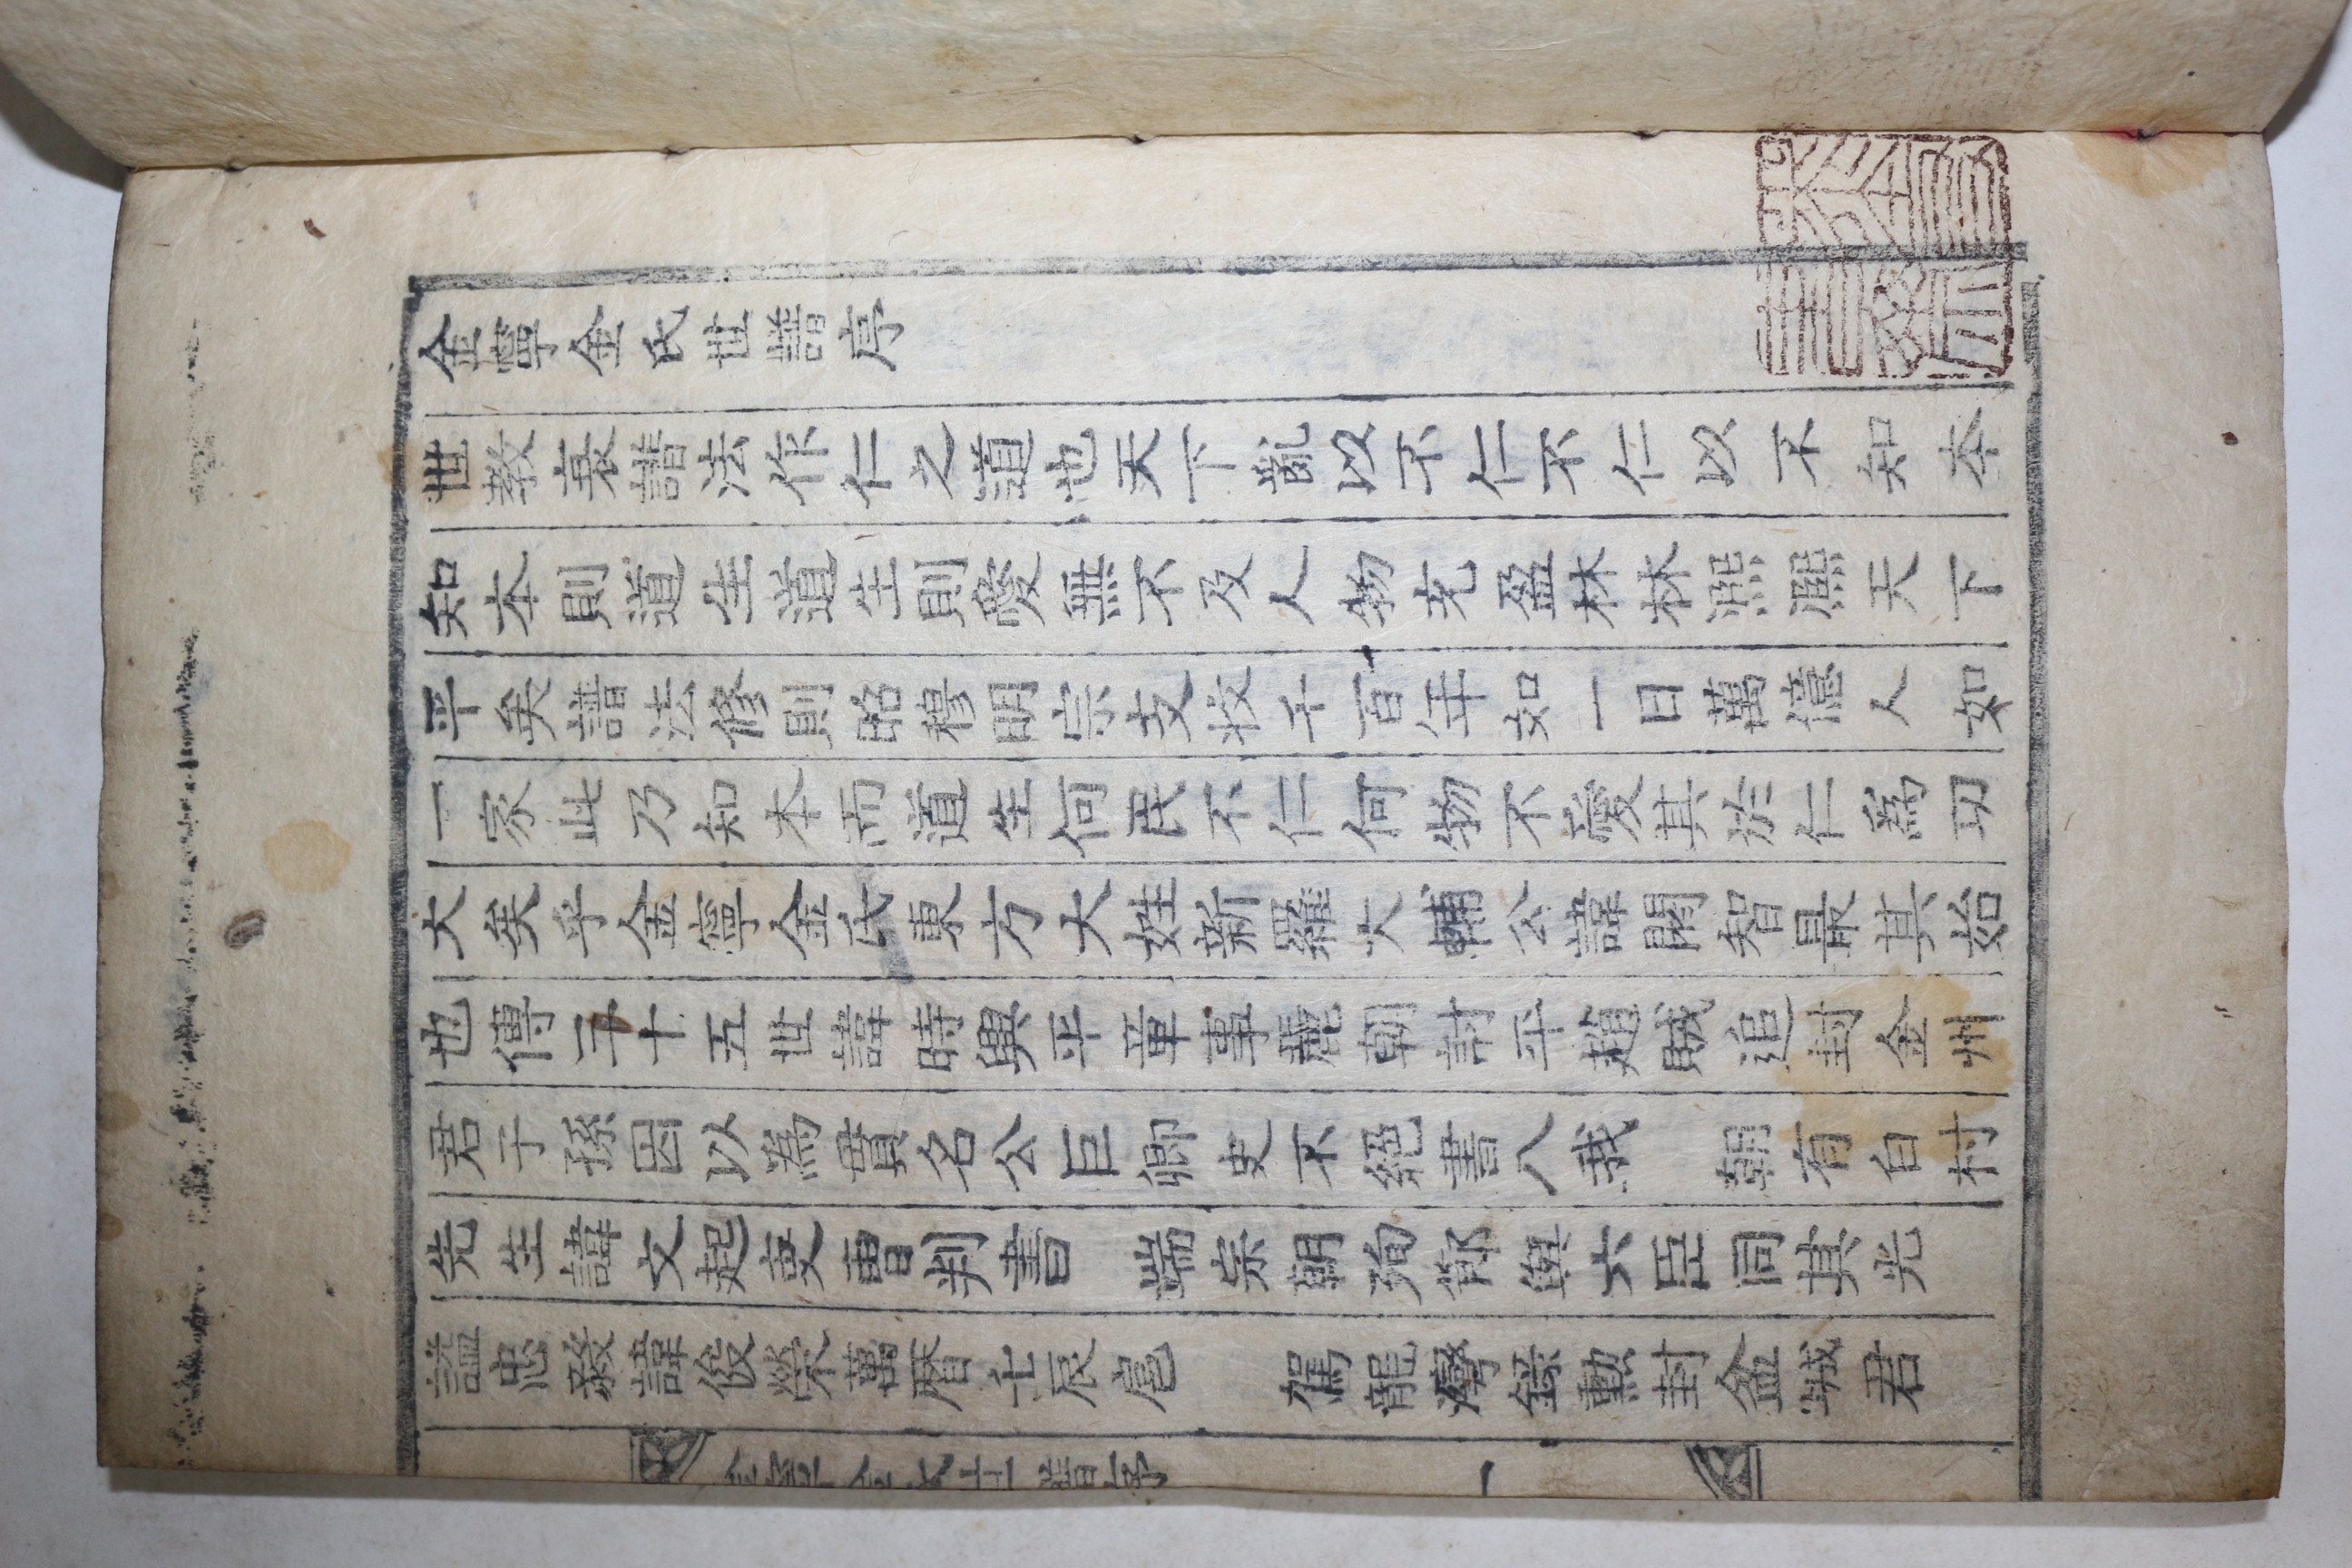 金寧金氏世譜序
世教衰譜法作仁之道也天下亂以不仁不仁以不知本
知本則道生道生則愛無不及人物充盈林林濕濕天下
平矣譜法修則昭穆明宗支收千百年如一日萬億人如
一家此乃知本而道生何民不仁何物不愛其於仁爲功
大矣乎金寧金氏東方大姓新羅大輔公諱閼智最其始
也傳三十五世諱時興平章事麗朝討平趙賊追封金州
君子孫因以為貫名公巨卿史不絕書八我 朝有白村
先生諱文起吏曹判書 端宗朝殉節與六臣同其光
謚忠毅諱俊榮萬曆壬辰扈 駕龍灣錄勳封盆城君
金寧金氏世譜序 一